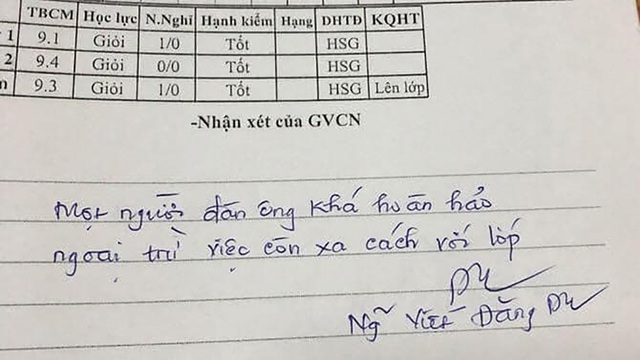 TBCM Học lực N.Nghỉ Hạnh kiểm Hạng DHTĐ KQHT
1 9.1 Giỏi 1/0 Tốt HSG
2 9.4 Giỏi 0/0 Tốt HSG
n 9.3 Giỏi 1/0 Tốt HSG Lên lớp
-Nhận xét của GVCN
Một người đàn ông khá hoàn hảo
ngoại trừ việc còn xa cách với lớp
Viết Đăng